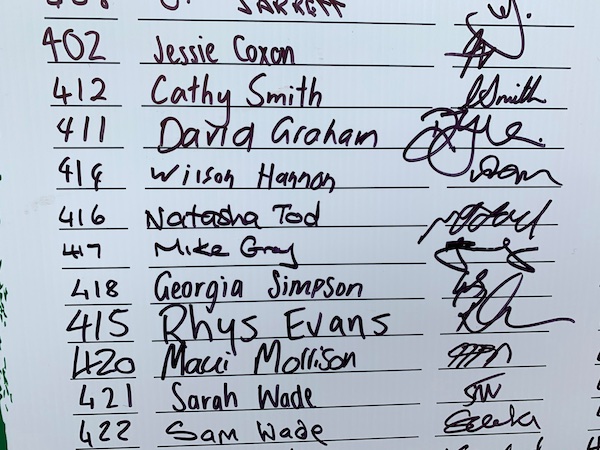 JARRETT
402 Jessie Coxon
412 Cathy Smith Smith
411 David Graham
414 Wilson Hannon
416 Natasha Tod
417 Mike Gray
418 Georgia Simpson
415 Rhys Evans
420 Maui Mollison
421 Sarah Wade SW
422 Sam Wade